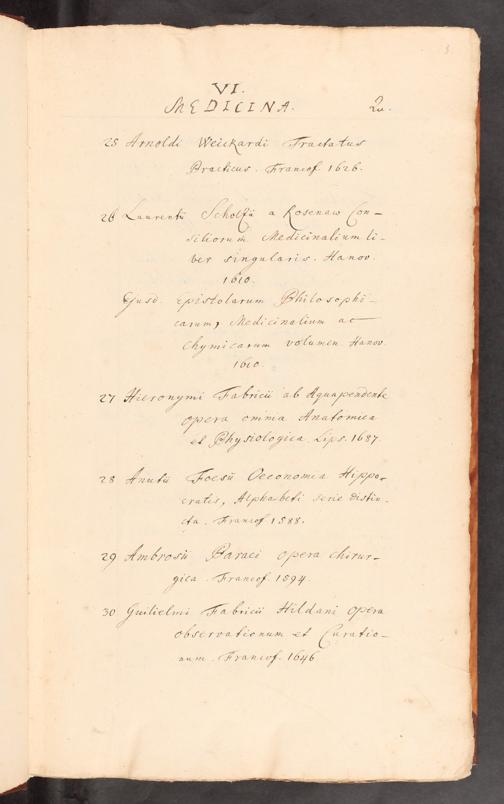 3
VI.
MEDICINA. 2u.
25 Arnoldi Weickardi Tractatus
Practicus. Francof. 1626.
26 Laurentii Scholfii a Rosenaw Con-
siliorum Medicinalium li-
ber singularis. Hanov.
1610.
Ejusd. Epistolarum Philosophi-
carum, Medicinalium ac
Chymicarum volumen Hanov.
1610.
27 Hieronymi Fabricii ab Aquapendente
opera omnia Anatomica
et Physiologica. Lips. 1687.
28 Anutii Foesii Oeconomia Hippo-
cratis, Alphabeti serie distin-
cta. Francof. 1588.
29 Ambrosii Paraei opera chirur-
gica. Francof. 1594.
30 Guilielmi Fabricii Hildani opera
observationum et Curatio-
num. Francof. 1646